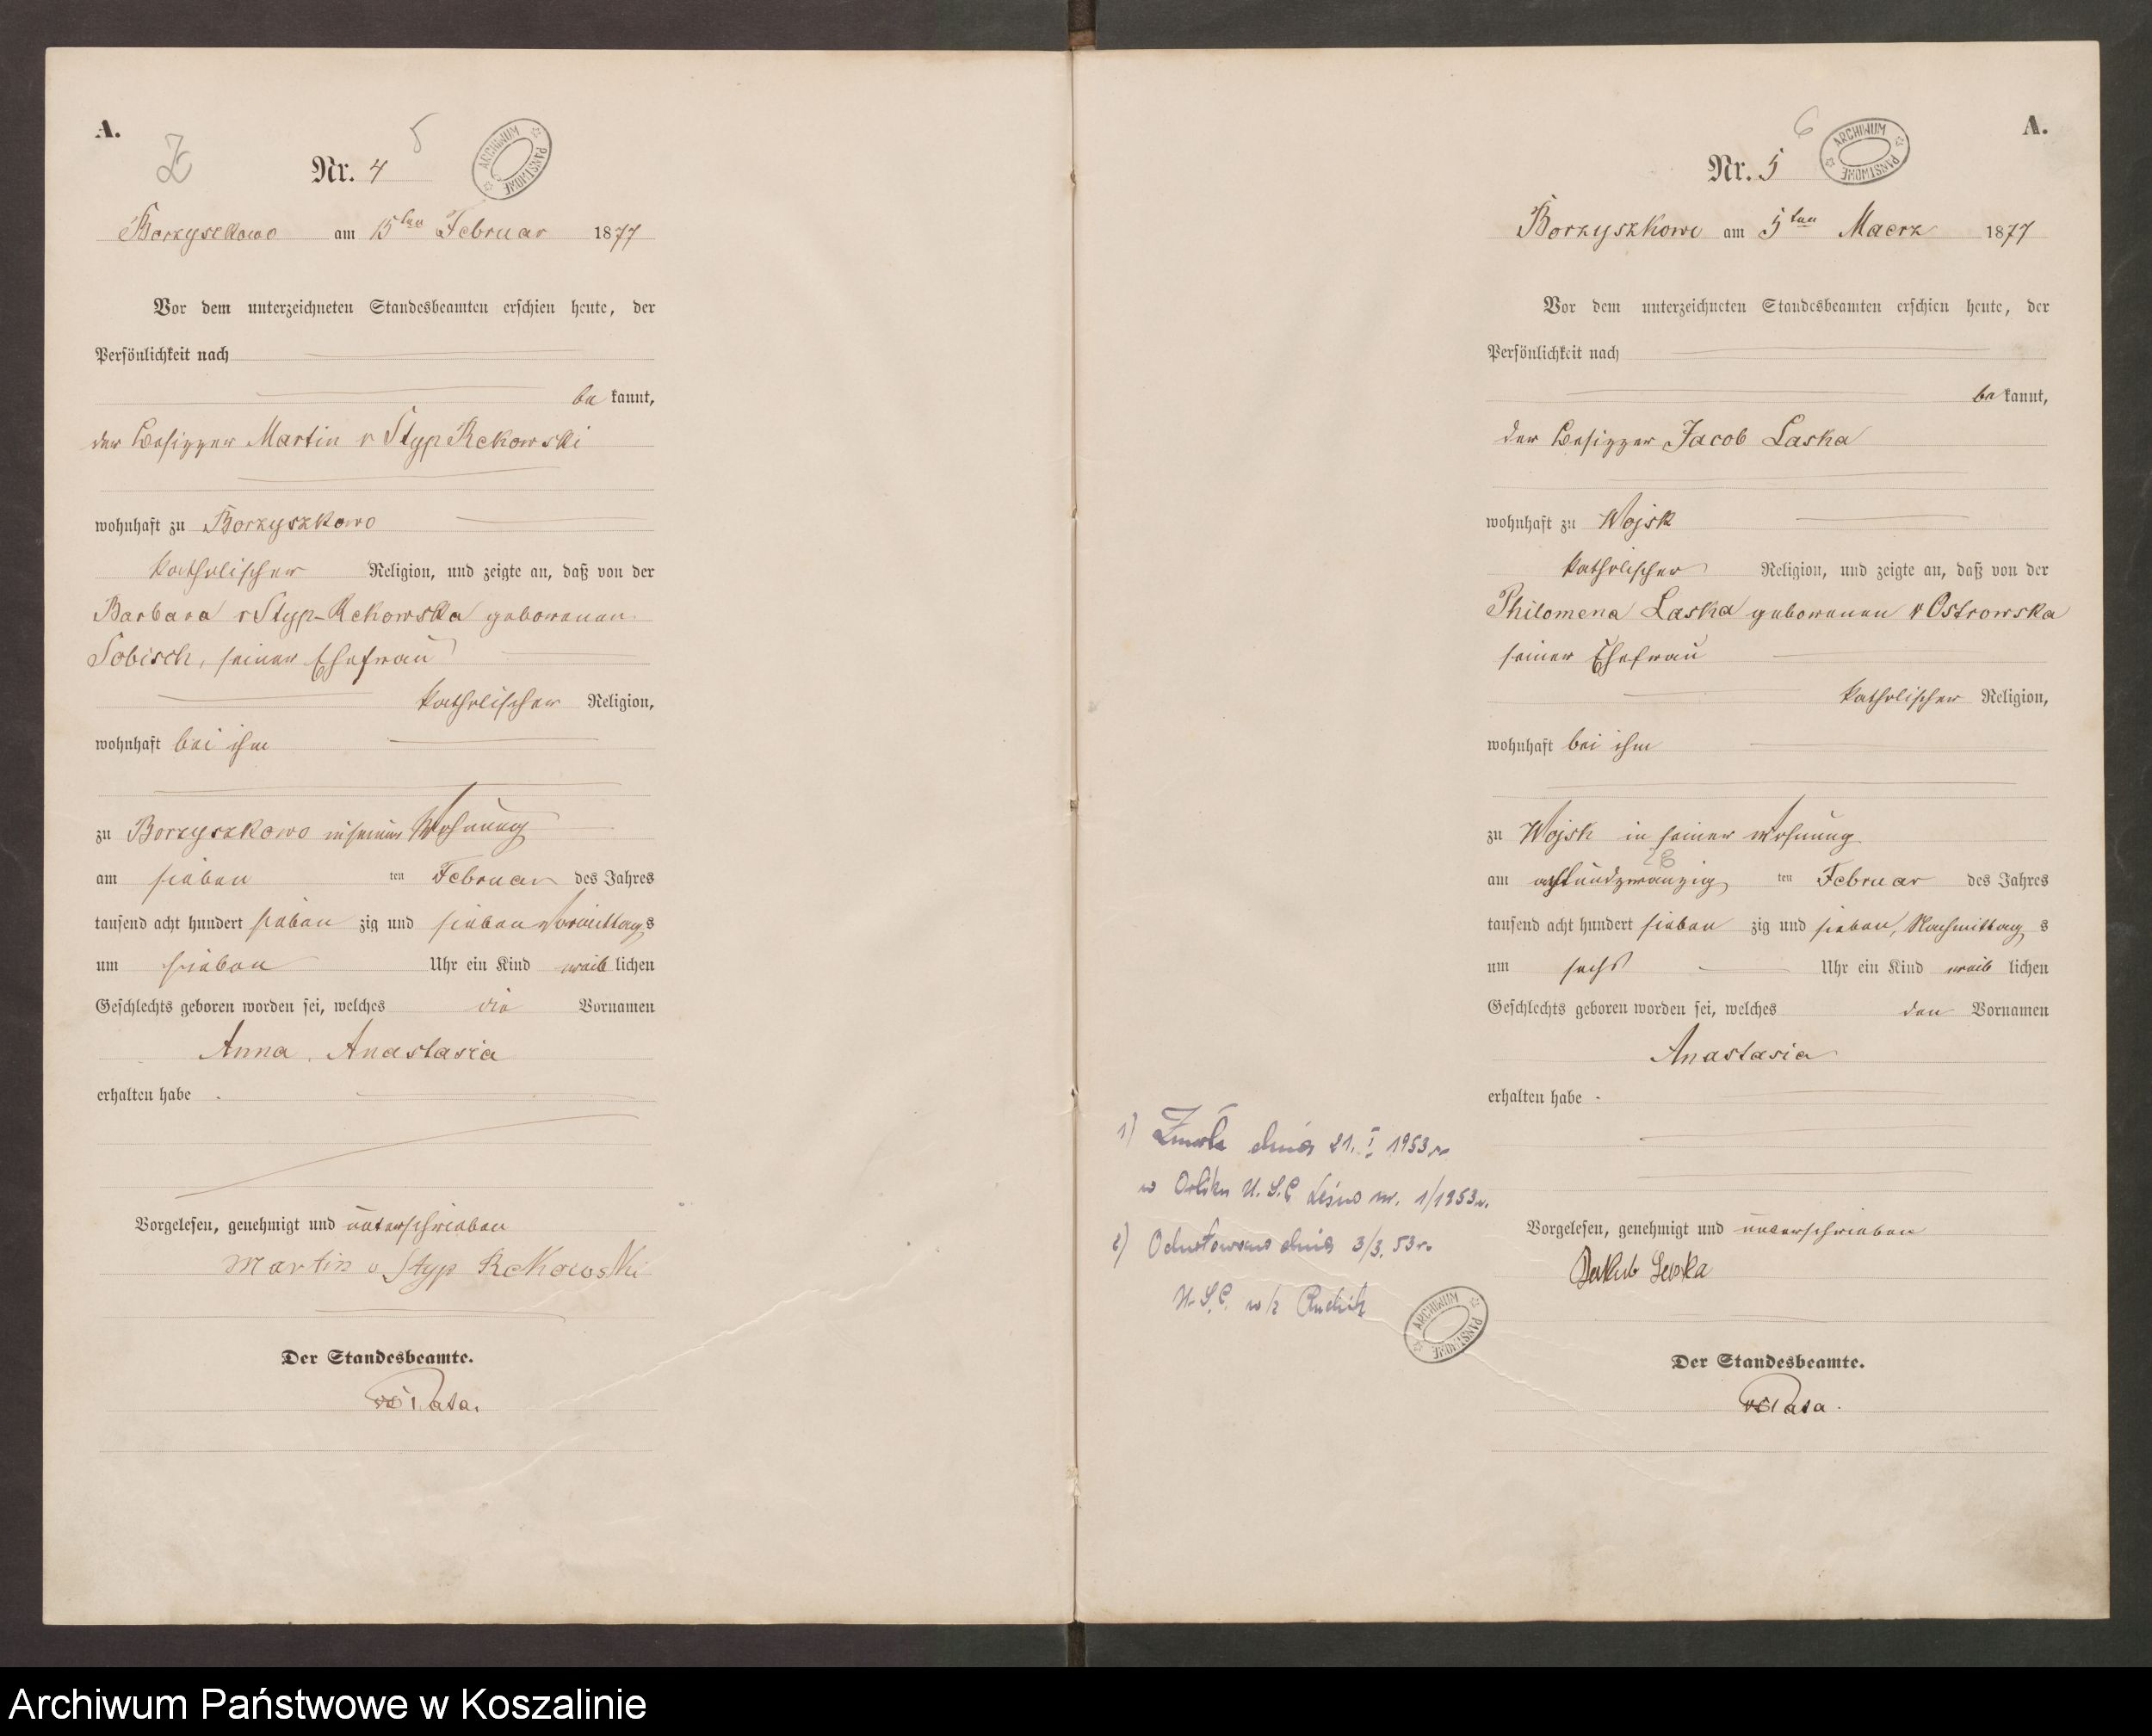 A.
5
Nr. 4
ARCHIWUM PAŃSTWOWE
Borzyszkowo am 15ten Februar 1877
Vor dem unterzeichneten Standesbeamten erschien heute, der
Persönlichkeit nach
be kannt,
der Besizzer Martin v Styp Rekowski
wohnhaft zu Borzyszkowo
katholischer Religion, und zeigte an, daß von der
Barbara v Styp-Rekowska geborenen
Sobisch, seiner Ehefrau
katholischer Religion,
wohnhaft bei ihm
zu Borzyszkowo in seiner Wohnung
am sieben ten Februar des Jahres
tausend acht hundert sieben zig und sieben Vormittags
um sieben Uhr ein Kind weib lichen
Geschlechts geboren worden sei, welches die Vornamen
Anna, Anastasia
erhalten habe .
Vorgelesen, genehmigt und unterschrieben
Martin v Styp Rekowski
Der Standesbeamte.
A.
6
Nr. 5
ARCHIWUM PAŃSTWOWE
Borzyszkowo am 5ten Maerz 1877
Vor dem unterzeichneten Standesbeamten erschien heute, der
Persönlichkeit nach
be kannt,
der Besizzer Jacob Laska
wohnhaft zu Wojsk
katholischer Religion, und zeigte an, daß von der
Philomena Laska geborenen v Ostrowska
seiner Ehefrau
katholischer Religion,
wohnhaft bei ihm
zu Wojsk in seiner Wohnung
28
am achtundzwanzig ten Februar des Jahres
tausend acht hundert sieben zig und sieben, Nachmittag s
um sechs Uhr ein Kind weib lichen
Geschlechts geboren worden sei, welches den Vornamen
Anastasia
erhalten habe .
Vorgelesen, genehmigt und unterschrieben
Jakub Laska
Der Standesbeamte.
1) Zmarła dnia 21. I 1953 r.
w Orliku U.S.C. Leśno nr. 1/1953 r.
2) dnia 3/3. 53 r.
U.S.C. w/z
ARCHIWUM PAŃSTWOWE
Archiwum Państwowe w Koszalinie